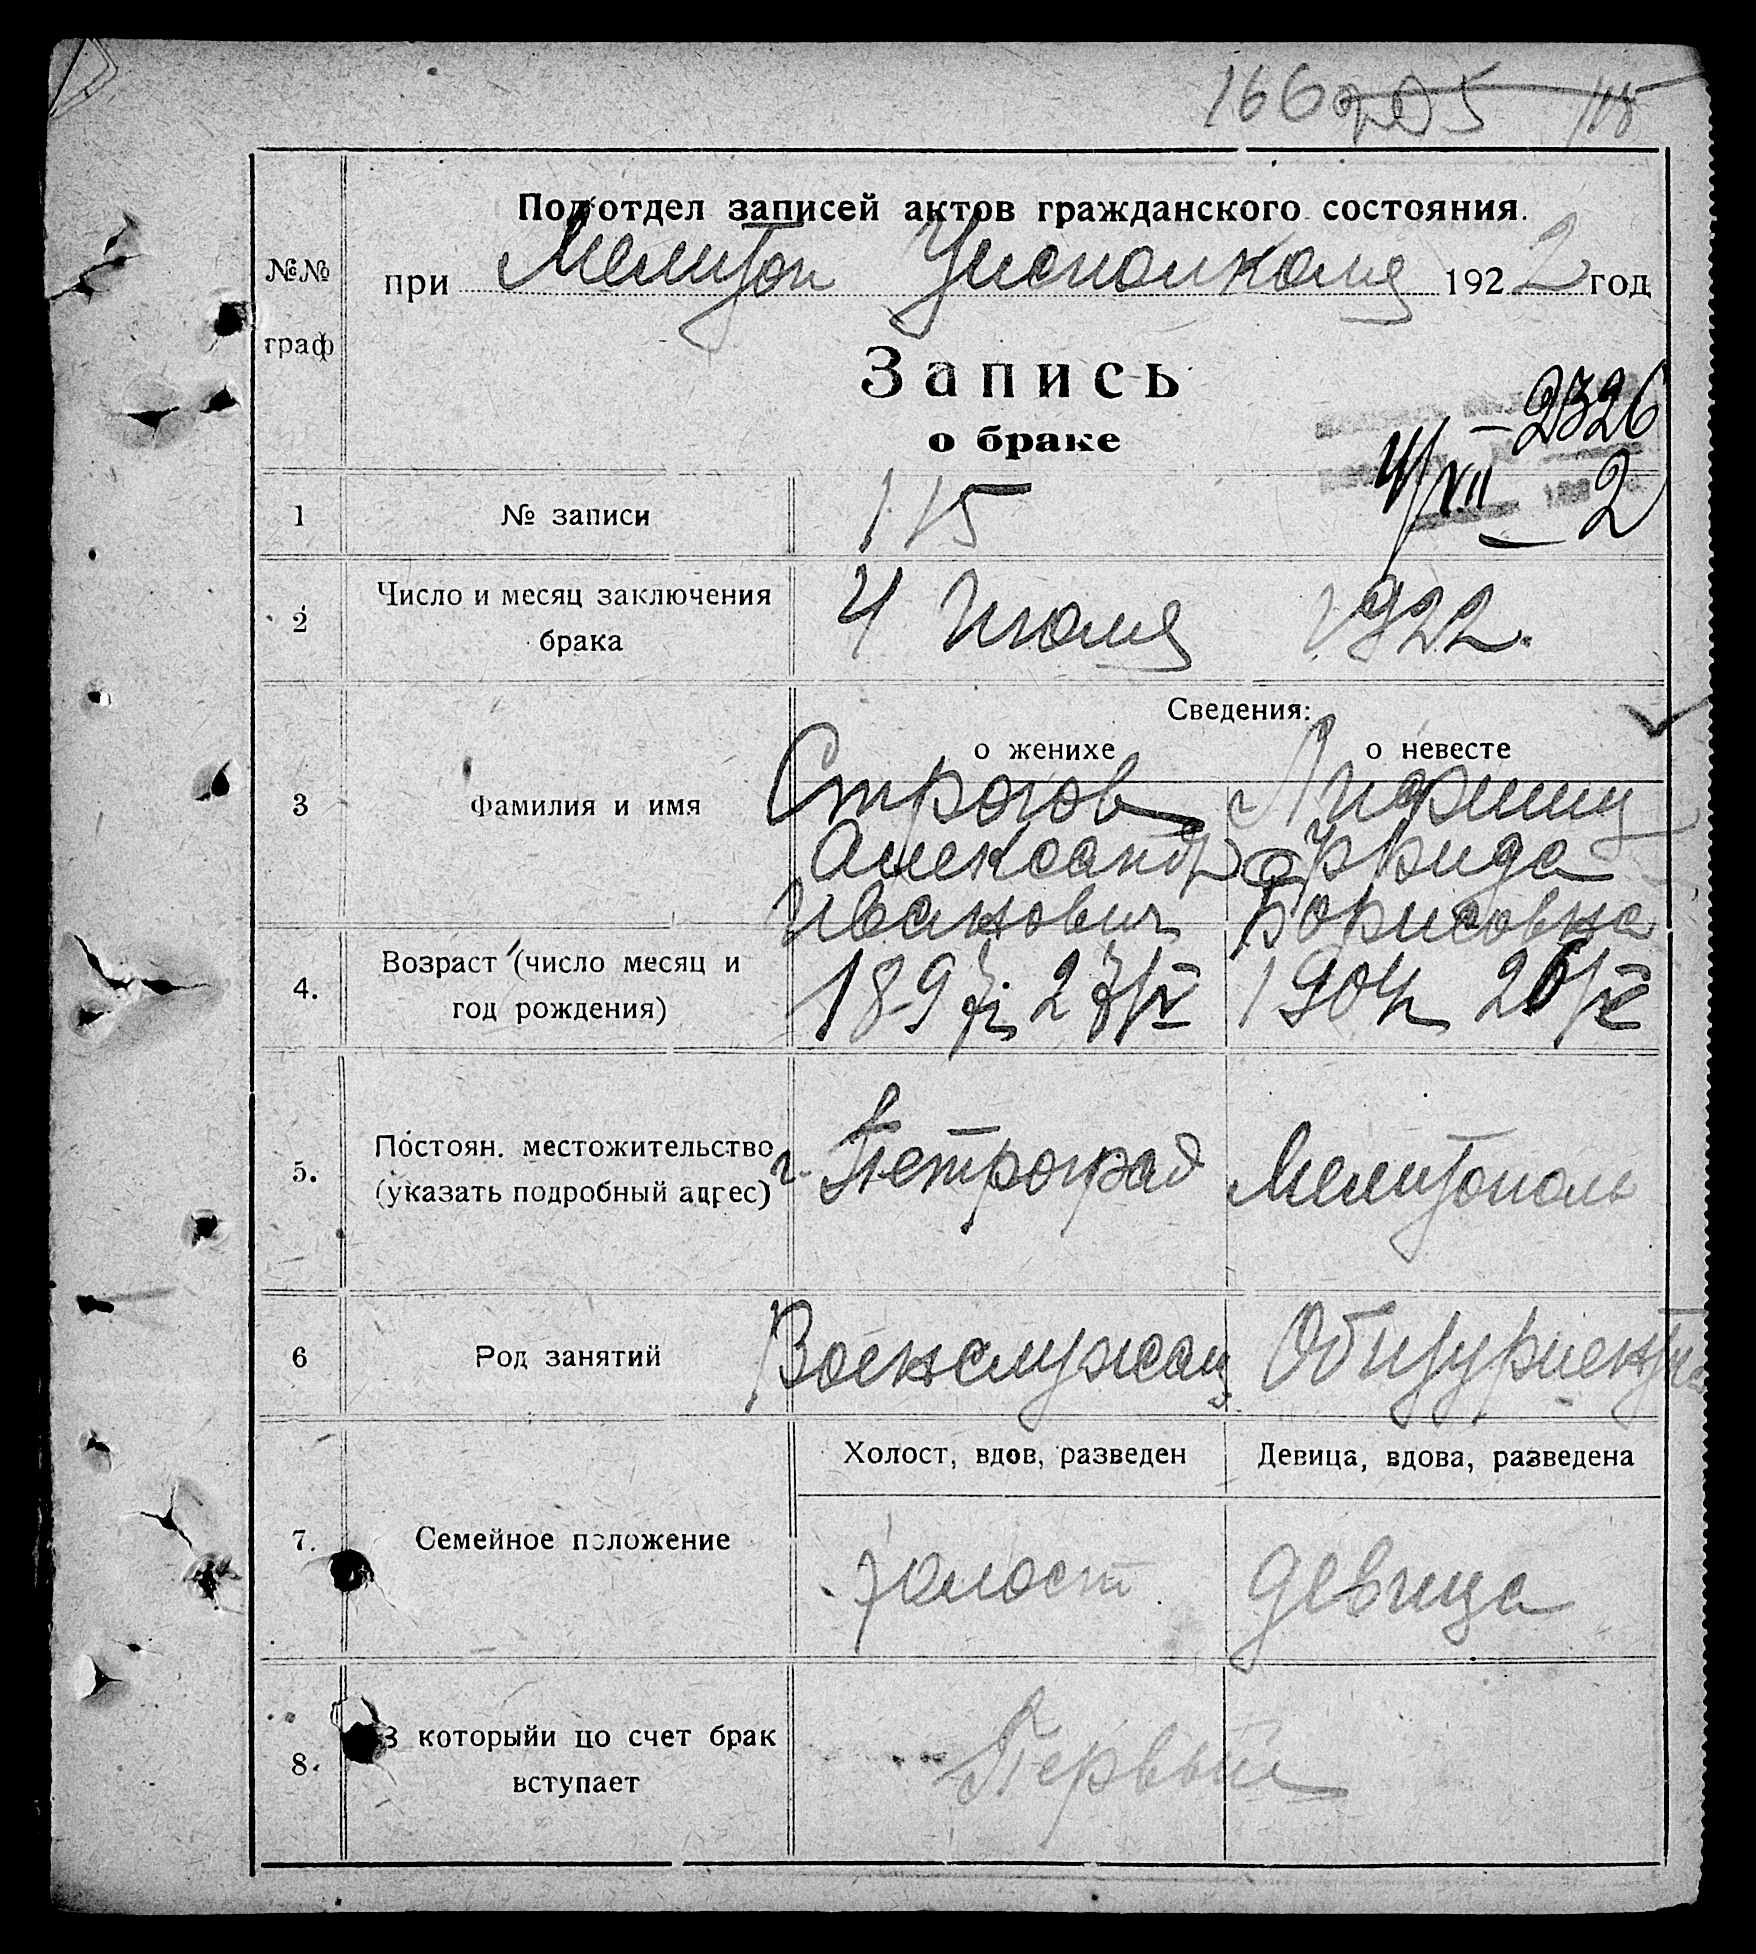 166 205 115
Подотдел записей актов гражданского состояния.
№№ при Мелитоп Уисполкома 1922 год
граф
Запись
о браке
2326
4/VII 2
1 № записи 115
2 Число и месяц заключения брака 4 Июля 1922.
Сведения:
о женихе о невесте
3 Фамилия и имя Строгов Лифшиц
Александр Фрида
Иванович Борисовна
4. Возраст (число месяц и
год рождения) 1897г. 27/IV 1904г 26/
5. Постоян. местожительство
(указать подробный адрес) г. Петроград Мелитополь
6 Род занятий Военслужащ. Обитуриентка
Холост, вдов, разведен Девица, вдова, разведена
7. Семейное положение холост девица
8. В которыйи по счет брак
вступает Первый